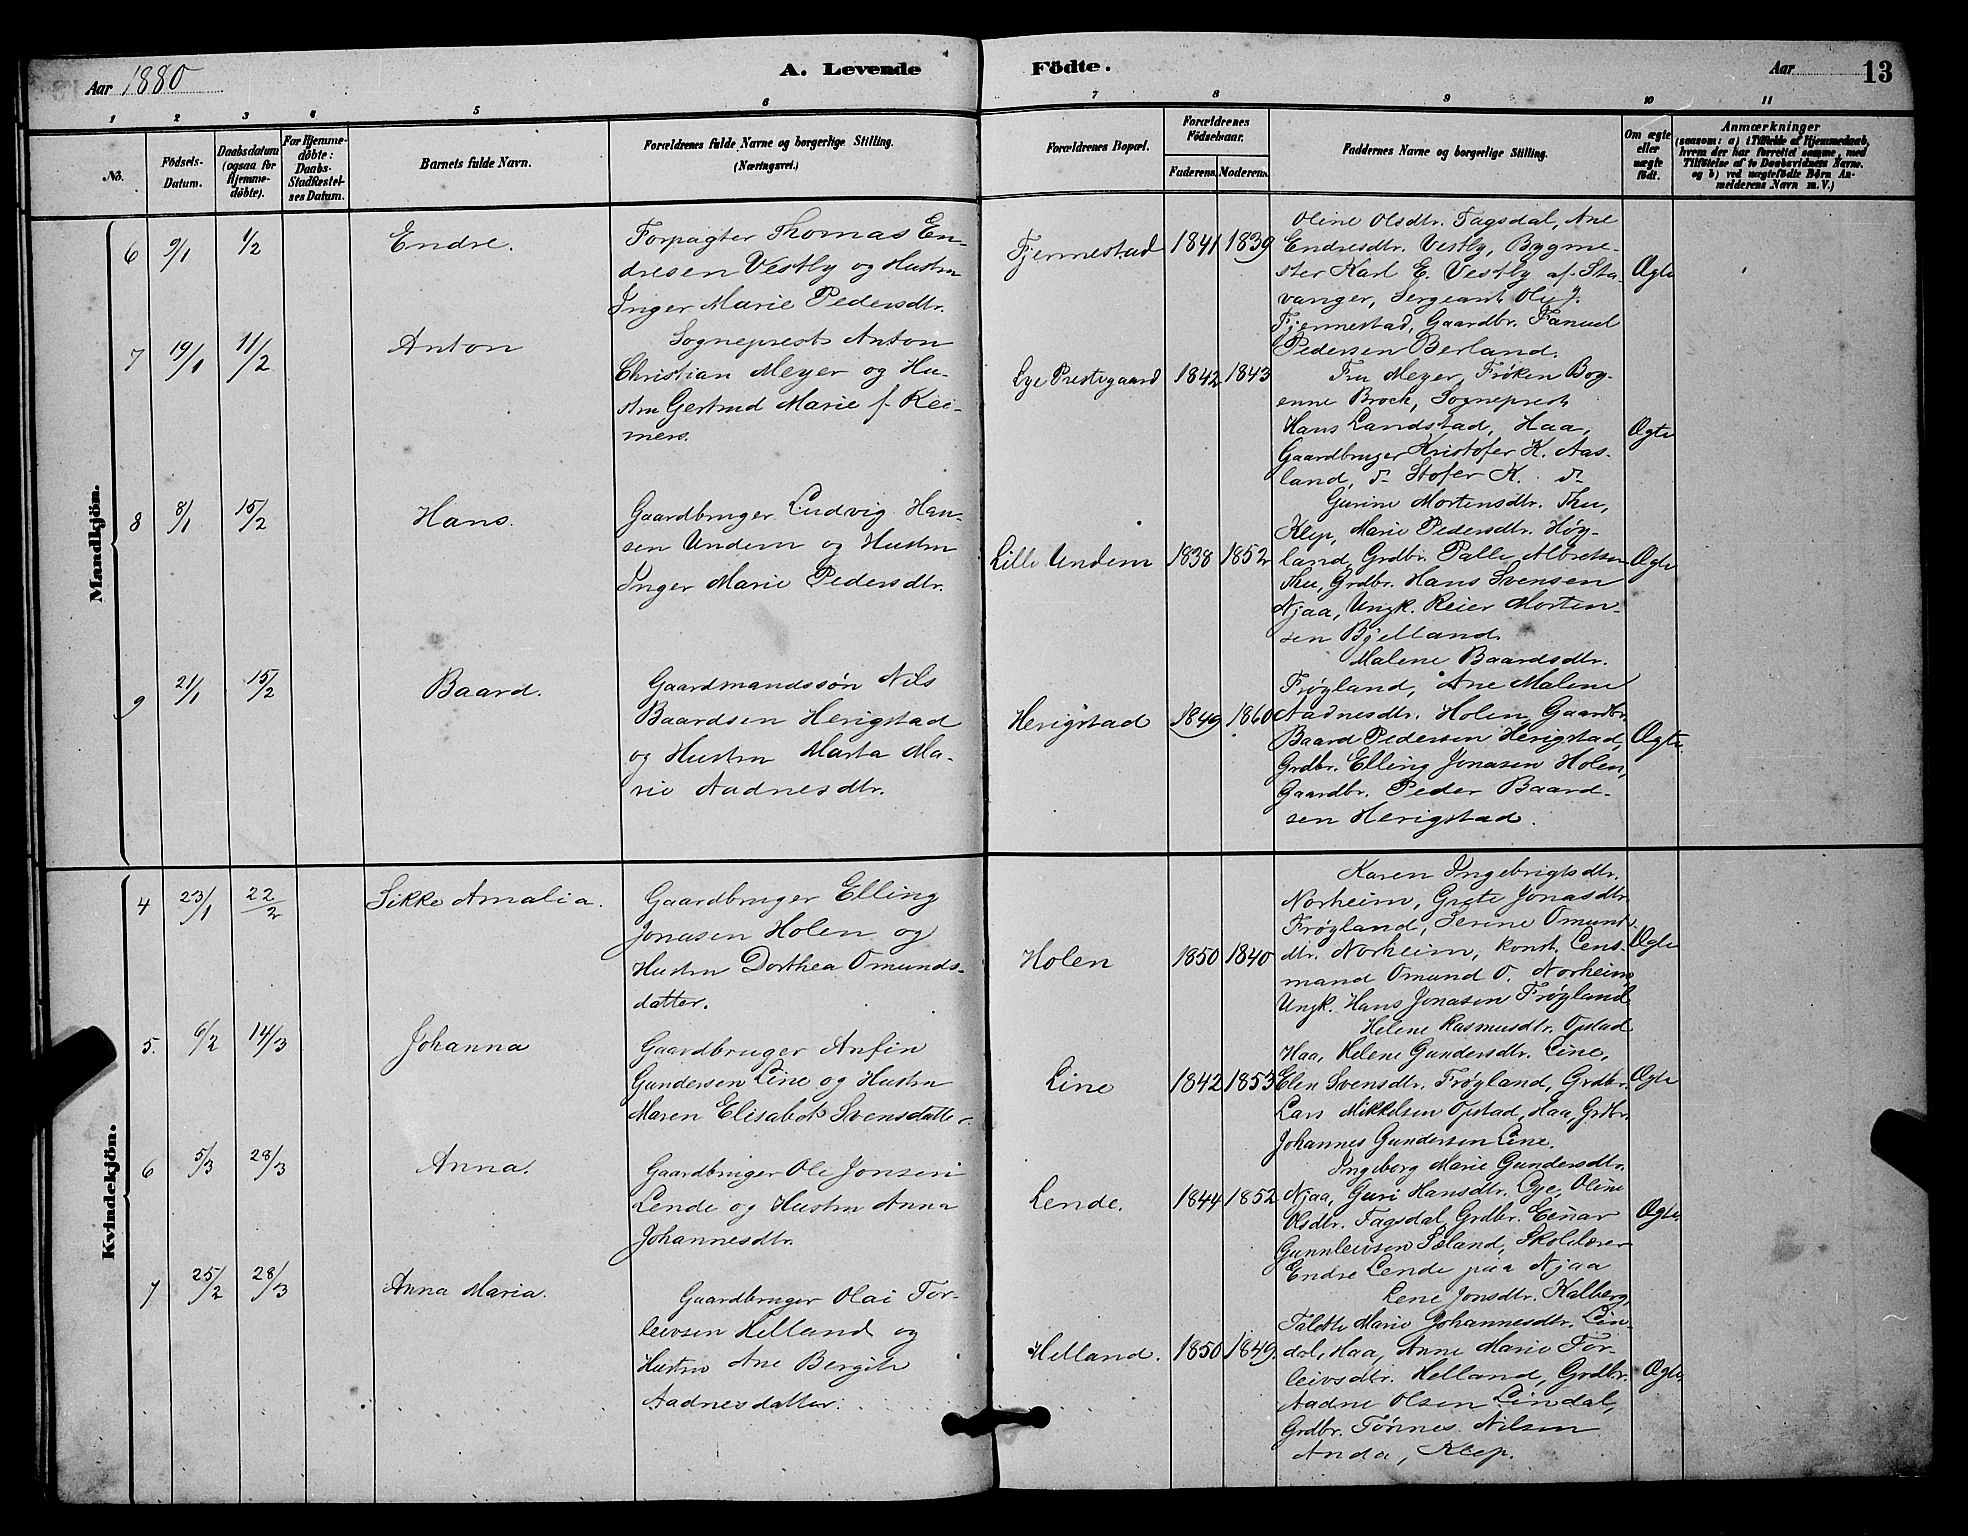 Aar 1880
A. Levende
Födte.
Aar
13
1 2 3 4 5 6 7 8 9 10 11
No.
Födsels-
Datum.
Daabsdatum
(ogsaa for
Hjemme-
döbte).
For Hjemme-
döbte:
Daabs-
Stadfæstel-
ses Datum.
Barnets fulde Navn.
Forældrenes fulde Navne og borgerlige Stilling.
(Næringsvei.)
Forældrenes Bopæl.
Forældrenes
Födselsaar.
Faderens.
Moderens.
Faddernes Navne og borgerlige Stilling.
Om ægte
eller
uægte
födt.
Anmærkninger
(saasom: a) i Tilfælde af Hjemmedaab,
hvem der har forrettet samme, med
Tilföielse af to Daabsvidners Navne.
og b) ved uægtefödte Börn An-
melderens Navn m. V.)
Mandkjön.
6 9/1 1/2 Endre.
Forpagter Thomas En-
dresen Vestly og Hustru
Inger Marie Pedersdtr.
Fjermestad 1841 1839
Oline Olsdtr. Fagsdal, Ane
Endresdtr. Vestly, Bygme-
ster Karl E. Vestly af Sta-
vanger, Sergeant Ole J.
Fjermestad, Gaardbr. Fanuel
Pedersen Berland.
Ægte
7 19/1 11/2 Anton
Sogneprest Anton
Christian Meyer og Hu-
stru Gertrud Marie f. Rei-
mers.
Lye Prestegaard 1842 1843
Fru Meyer, Frøken Bog-
enne Brock, Sogneprest
Hans Landstad, Haa,
Gaardbruger Kristofer K. Aas-
land, do Stofer K. do
Ægte
8 8/1 15/2 Hans.
Gaardbruger Ludvig Han-
sen Undem og Hustru
Inger Marie Pedersdtr.
Lille Undem 1838 1852
Gurine Mortensdtr. Thu,
Klep, Marie Pedersdtr. Høy-
land, Grdbr. Palle Albretsen
Thu, Grdbr. Hans Svensen
Njaa, Ungk. Reier Morten-
sen Bjelland.
Ægte
9 21/1 15/2 Baard.
Gaardmandssøn Nils
Baardsen Herigstad
og Hustru Marta Ma-
rie Aadnesdtr.
Herigstad 1849 1860
Malene Baardsdtr.
Frøyland, Ane Malene
Aadnesdtr. Holen, Gaardbr.
Baard Pedersen Herigstad,
Grdbr. Elling Jonasen Holen,
Gaardbr. Peder Baard-
sen Herigstad.
Ægte.
Kvindekjön.
4 23/1 22/2 Sikke Amalia.
Gaardbruger Elling
Jonasen Holen og
Hustru Dorthea Omunds-
datter.
Holen 1850 1840
Karen Ingebrigtsdtr.
Norheim, Grete Jonasdtr.
Frøyland, Serine Omunds-
dtr. Norheim, konst. Lens-
mand Omund O. Norheim,
Ungk. Hans Jonasen Frøyland
Ægte
5. 6/2 14/3 Johanna
Gaardbruger Anfin
Gundersen Line og Hustru
Maren Elisabet Svensdatter.
Line 1842 1853
Helene Rasmusdtr. Opstad
Haa, Helene Gundersdtr. Line,
Elen Svensdtr. Frøyland, Grdbr.
Lars Mikkelsen Opstad, Haa, Grdbr.
Johannes Gundersen Line.
Ægte
6 5/3 28/3 Anna.
Gaardbruger Ole Jonsen
Lende og Hustru Anna
Johannesdtr.
Lende. 1844 1852
Ingeborg Marie Gundersdtr.
Njaa, Guri Hansdtr. Lye, Oline
Olsdtr. Fagsdal, Grdbr. Einar
Gunnleivsen Sæland, Skolelærer
Endre Lende paa Njaa
Ægte.
7 25/2 28/3 Anna Maria.
Gaardbruger Olai Tor-
leivsen Helland og
Hustru Ane Bergite
Aadnesdatter.
Helland. 1850 1849.
Lene Jonsdtr. Kalberg,
Talette Marie Johannesdtr. Lin-
dal, Haa, Anne Marie Tor-
leivsdtr. Helland, Grdbr.
Aadne Olsen Lindal,
Grdbr. Tønnes Nilsen
Anda, Klep.
Ægte.